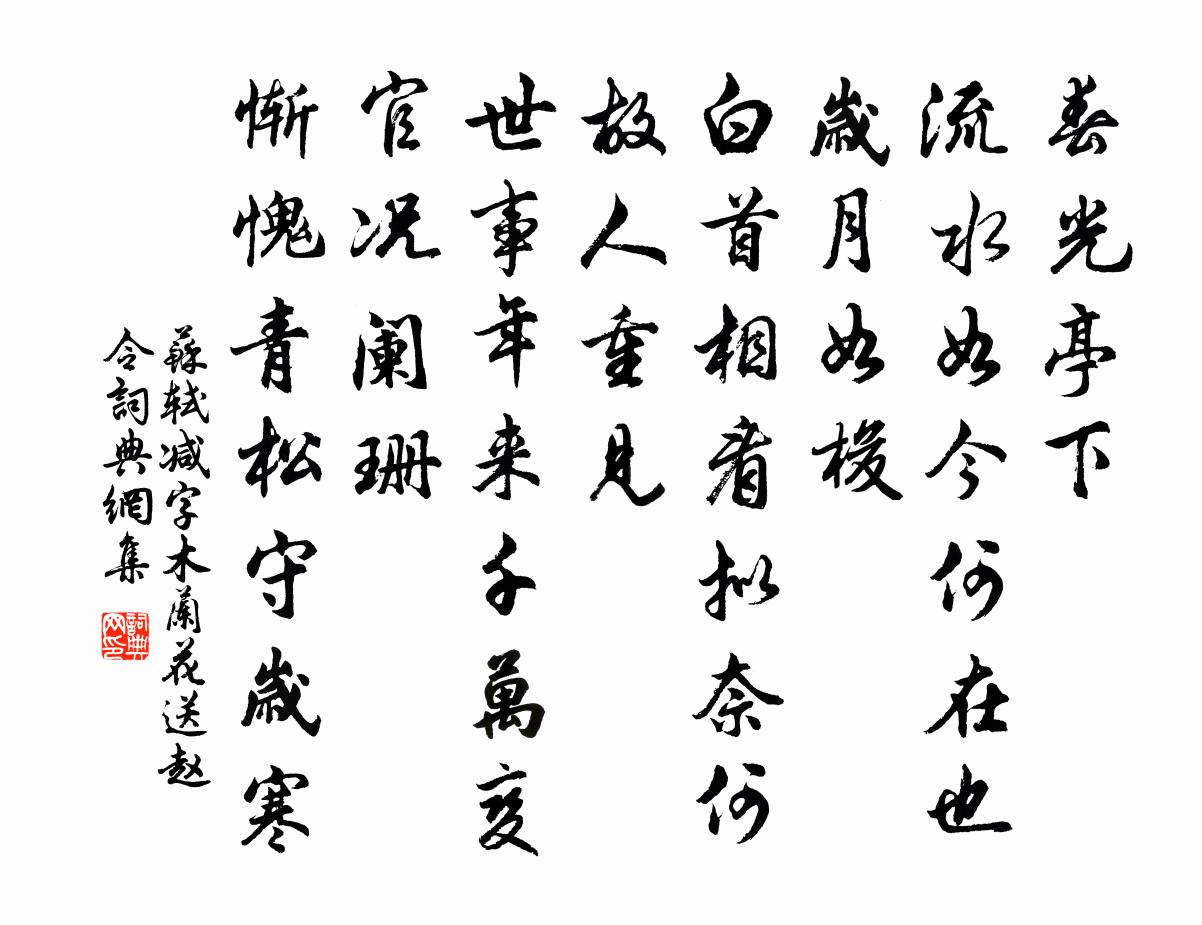 春光亭下
流水如今何在也
歲月如梭
白首相看拟奈何
故人重见
世事年来千萬变
官况阑珊
惭愧青松守歲寒
蘇轼减字木蘭花送赵
令詞典網集
詞典
网印